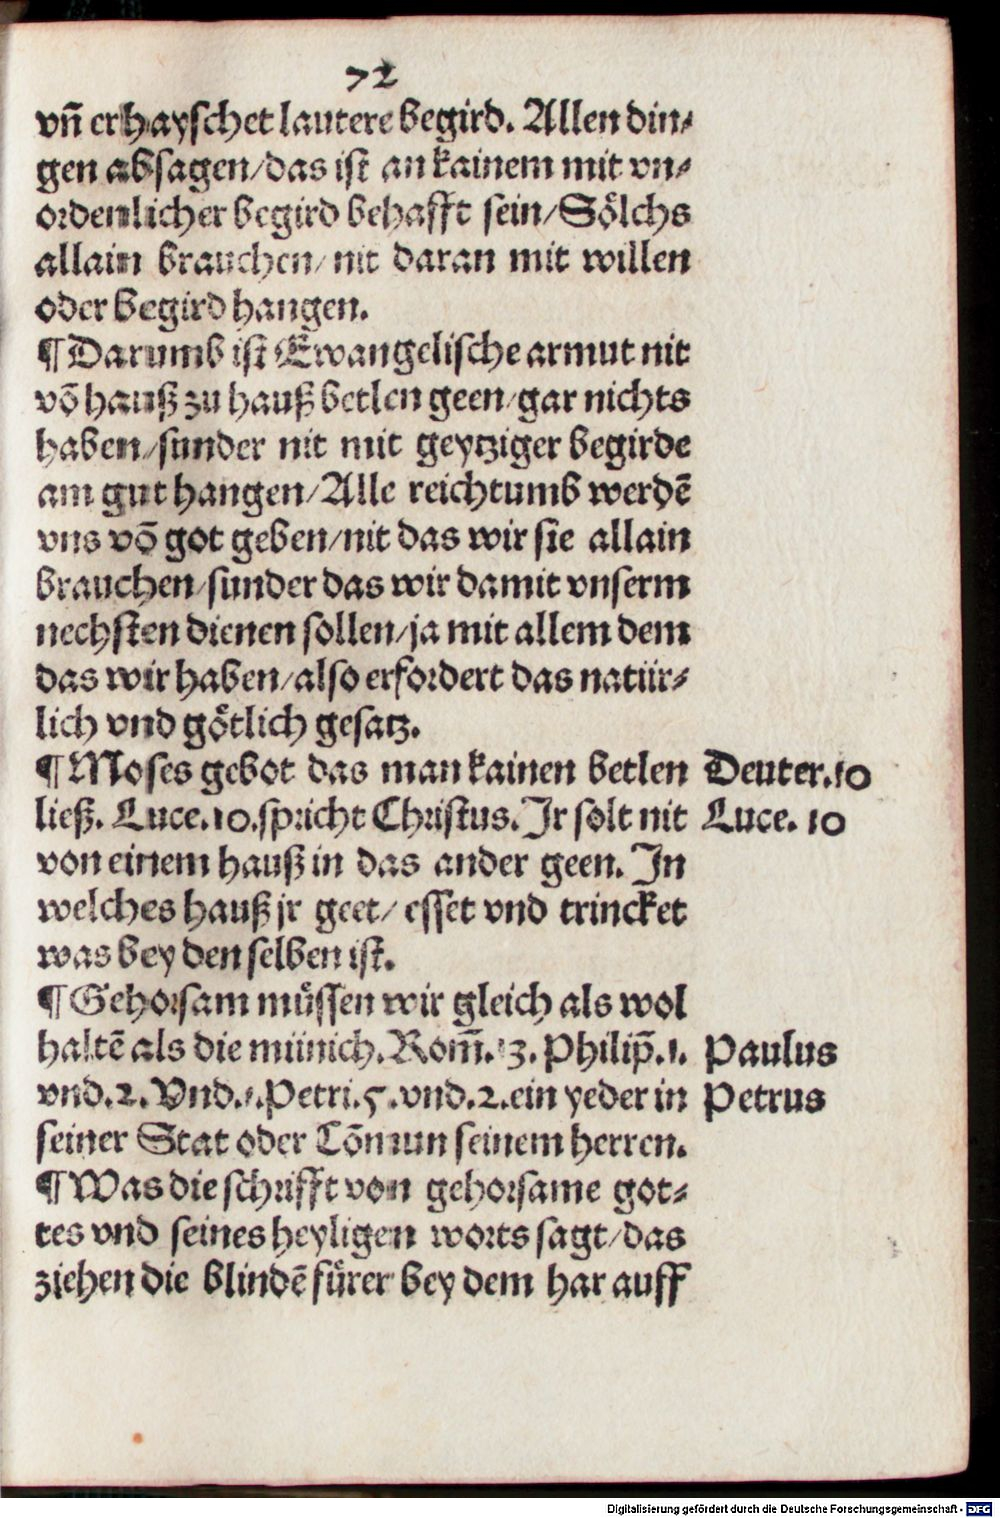 72
vñ erhayschet lautere begird. Allen din⸗
gen absagen/das ist an kainem mit vn⸗
ordenlicher begird behafft sein/Sölchs
allain brauchen/nit daran mit willen
oder begird hangen.
¶Darumb ist Ewangelische armut nit
võ hauß zu hauß betlen geen/gar nichts
haben/sunder nit mit geytziger begirde
am gut hangen/Alle reichtumb werdẽ
vns võ got geben/nit das wir sie allain
brauchen/sunder das wir damit vnserm
nechsten dienen sollen/ja mit allem dem
das wir haben/also erfordert das natür⸗
lich vnd götlich gesatz.
¶Moses gebot das man kainen betlen Deuter.10
ließ. Luce.10.spricht Christus. Ir solt nit Luce. 10
von einem hauß in das ander geen. In
welches hauß jr geet/ esset vnd trincket
was bey den selben ist.
¶Gehorsam müssen wir gleich als wol
haltẽ als die münich. Rom̃.13. Philip̃.1. Paulus
vnd.2. Vnd.1.Petri.5.vnd.2.ein yeder in Petrus
seiner Stat oder Cõmun seinem herren.
¶Was die schrifft von gehorsame got⸗
tes vnd seines heyligen worts sagt/das
ziehen die blindẽ fürer bey dem har auff
Digitalisierung gefördert durch die Deutsche Forschungsgemeinschaft - DFG